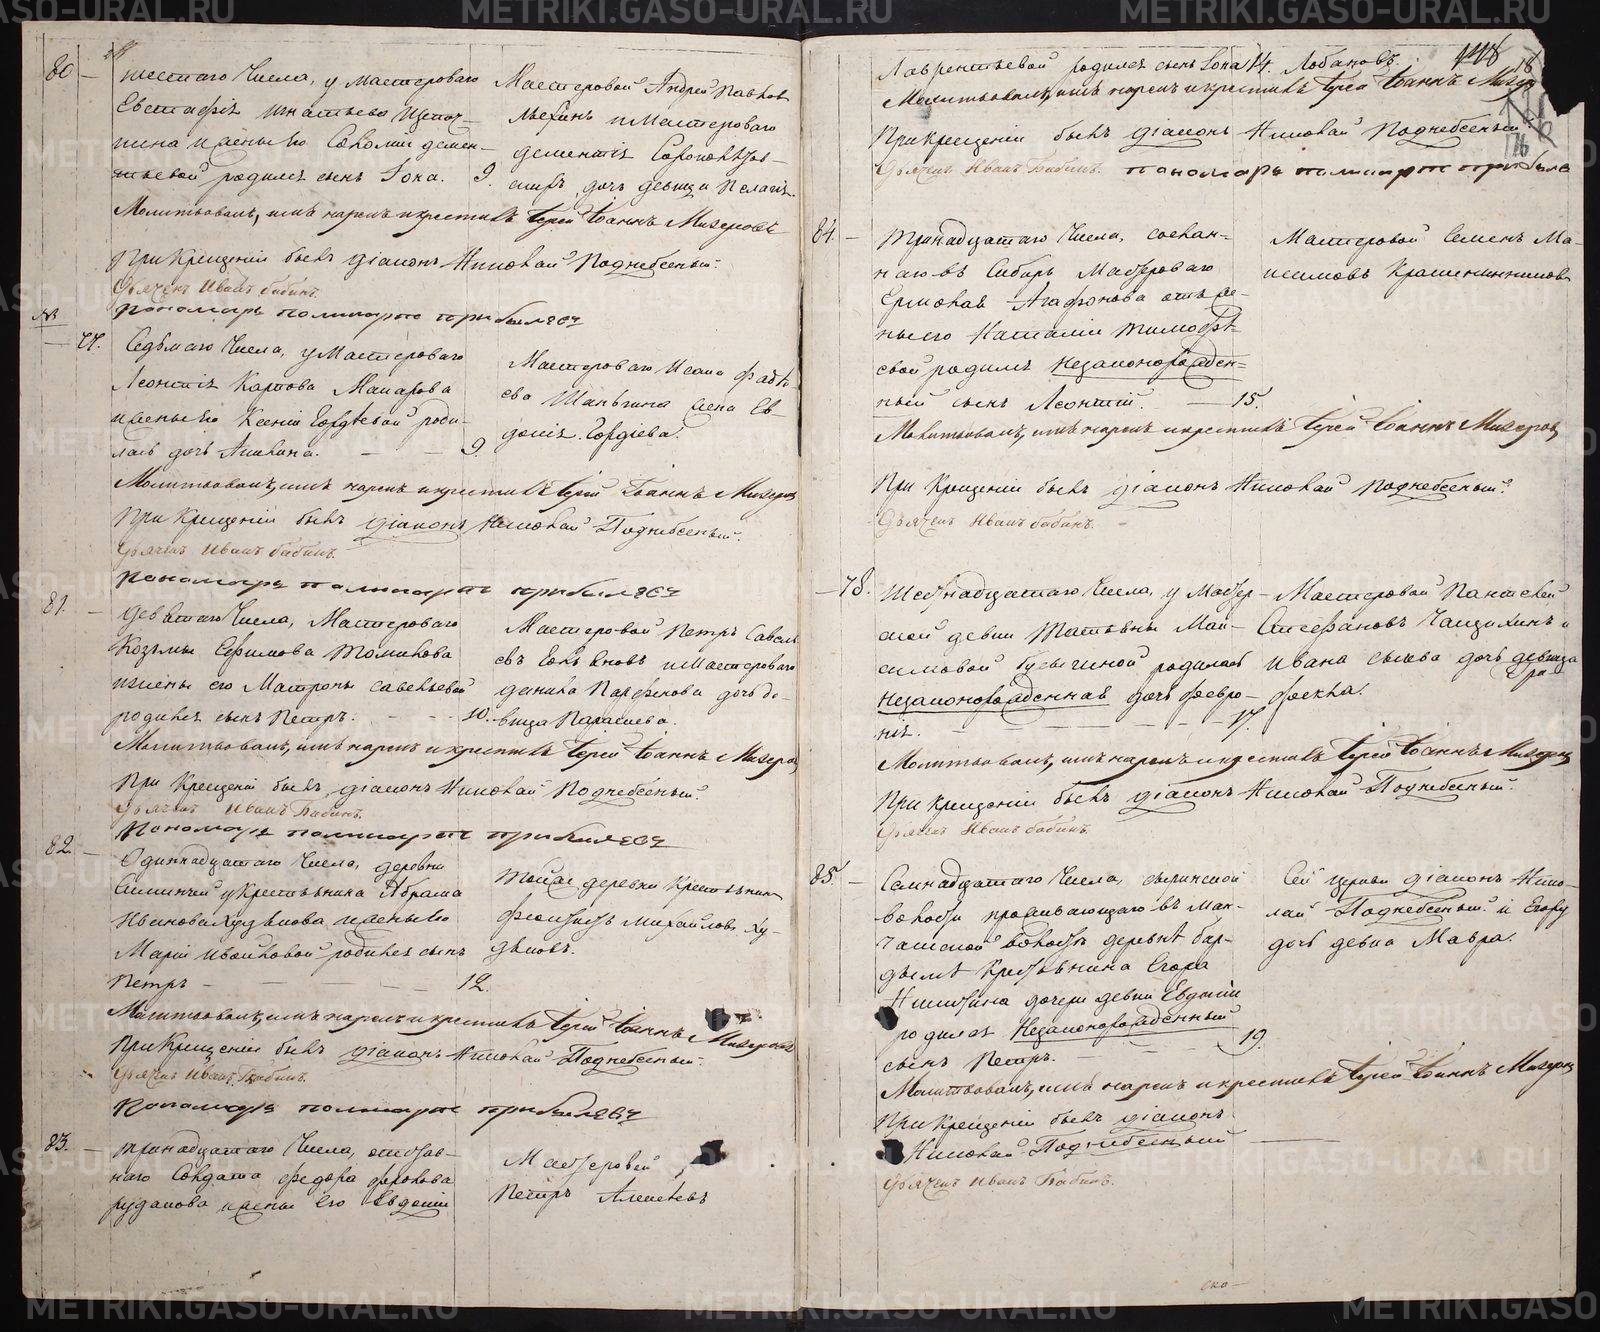 METRIKI.GASO-URAL.RU
80 —
шестаго Числа, у мастероваго
Евстафія Игнатьева
пина и жены его Соломіи Демен-
тьевой родился сынъ Зона. 9.
Мастеровой Андрей Павлов
и Мастероваго
Дементія
дочь девица Пелагія.
Молитвовалъ, имя нарекъ и крестилъ Іерей Іоаннъ Мизеровъ
При Крещеніи былъ діаконъ Николай Поднебесный.
Дьячекъ Иванъ Бабинъ.
Пономарь Поликарпъ Прибылевъ
77.
Седьмаго Числа, у Мастероваго
Леонтія Карпова Макарова
и жены его Ксеніи Гордѣевой роди-
лась дочь Акилина. — — 9.
Мастероваго Исака Фадѣ-
ева Шаньгина жена Ев-
докія Гордіева.
Молитвовалъ, имя нарекъ и крестилъ Іерей Іоаннъ Мизеровъ
При Крещеніи былъ діаконъ Николай Поднебесный.
Дьячекъ Иванъ Бабинъ.
Пономарь Поликарпъ Прибылевъ
81. —
Девятаго Числа, Мастероваго
Козьмы Ефимова Томилова
и жены его Матроны Савельевой
родился сынъ Петръ. — — 10.
Мастеровой Петръ Савель
евъ и Мастероваго
Данила Парфенова дочь де-
вица Парасковья.
Молитвовалъ, имя нарекъ и крестилъ Іерей Іоаннъ Мизеровъ
При Крещеніи былъ діаконъ Николай Поднебесный.
Дьячекъ Иванъ Бабинъ.
Пономарь Поликарпъ Прибылевъ
82. —
Одиннадцатаго Числа, деревни
у Крестьянина Абрама
Иванова Худякова и жены его
Маріи Ивановой родился сынъ
Петръ — — — 12.
Той же деревни Крестьянин
Михайловъ Ху-
дяковъ.
Молитвовалъ, имя нарекъ и крестилъ Іерей Іоаннъ Мизеровъ
При Крещеніи былъ діаконъ Николай Поднебесный.
Дьячекъ Иванъ Бабинъ.
Пономарь Поликарпъ Прибылевъ
83. —
тринадцатаго Числа, отстав-
наго Солдата Федора Фролова
Рудакова и жены его Евдокіи
Мастеровой
Петръ Алексеевъ
Лаврентьевой родился сынъ Зона 14. Лобановъ.
Молитвовалъ, имя нарекъ и крестилъ Іерей Іоаннъ Мизеров
При крещеніи былъ діаконъ Николай Поднебесный
Дьячекъ Иванъ Бабинъ. Пономарь Поликарпъ Прибылев
84. —
тринадцатаго Числа, сослан-
наго въ Сибирь Мастероваго
Ермолая Агафонова отъ же-
ны его Наталіи Тимофѣ-
евой родился незаконорожден-
ный сынъ Леонтій. — 15.
Мастеровой Семенъ Ма-
ксимовъ Крашенинников
Молитвовалъ, имя нарекъ и крестилъ Іерей Іоаннъ Мизеров
При Крещеніи былъ діаконъ Николай Поднебесный.
Дьячекъ Иванъ Бабинъ.
— 78.
Шестнадцатаго Числа, у Мастер-
ской девки Татьяны Мак-
симовой Гусычиной родилась
незаконорожденная дочь Февро-
нія. — — — 17.
Мастеровой Пантелей
Стефановъ и
Ивана дочь девица
Молитвовалъ, имя нарекъ и крестилъ Іерей Іоаннъ Мизеров
При крещеніи былъ діаконъ Николай Поднебесный.
Дьячекъ Иванъ Бабинъ.
85. —
Семнадцатаго Числа,
волости проживающаго въ Ман-
чажской волости деревнѣ Бар-
дымѣ Крестьянина Егора
Никитина дочери девки Евдокіи
родился Незаконорожденный
сынъ Петръ. — — 19.
Сей церкви діаконъ Нико-
лай Поднебесный и Егору
дочь девка Мавра.
Молитвовалъ, имя нарекъ и крестилъ Іерей Іоаннъ Мизеров
При Крещеніи былъ діаконъ
Николай Поднебесный —
Дьячекъ Иванъ Бабинъ.
METRIKI.GASO-URAL.RU